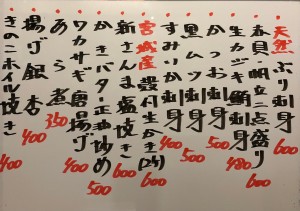 天然ぶり刺身 600
春貝・帆立二点盛り
生カジキ鮪刺身 480
かつお刺身 500
黒ムツ刺身 500
すみいか刺身 400
宮城産 殻付生かき(2ヶ) 600
新さんま塩焼き 600
かきバター正油炒め 500
ワカサギ唐揚げ 400
あら煮 350
揚げ銀杏 400
きのこホイル焼き 400